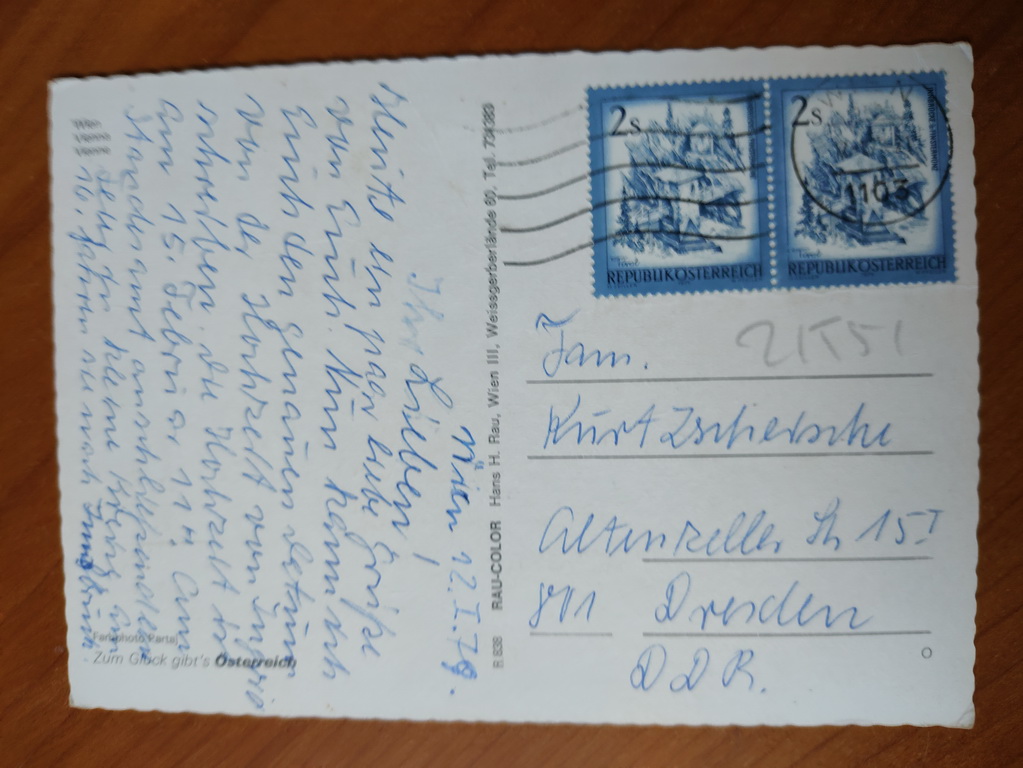 Wien 12.I.79.
Ihr Lieben!
Heute ein paar liebe Grüße
von Euch. Nun kann ich
Euch den genauen Datum
von der Hochzeit von Ingrid
schreiben. Die Hochzeit ist
am 15. Februar, 11h am
Standesamt anschließend
eine kleine
16. fahren sie nach Innsbruck
Farbphoto Partaj
- Zum Glück gibt's Österreich
B 838 RAU-COLOR Hans H. Rau, Wien III, Weissgerberlände 60, Tel.
2s
REPUBLIK ÖSTERREICH
2s
REPUBLIK ÖSTERREICH
1103
21551
Fam.
Kurt Zschiersche
Altenzeller Str 15 I
801 Dresden
DDR.